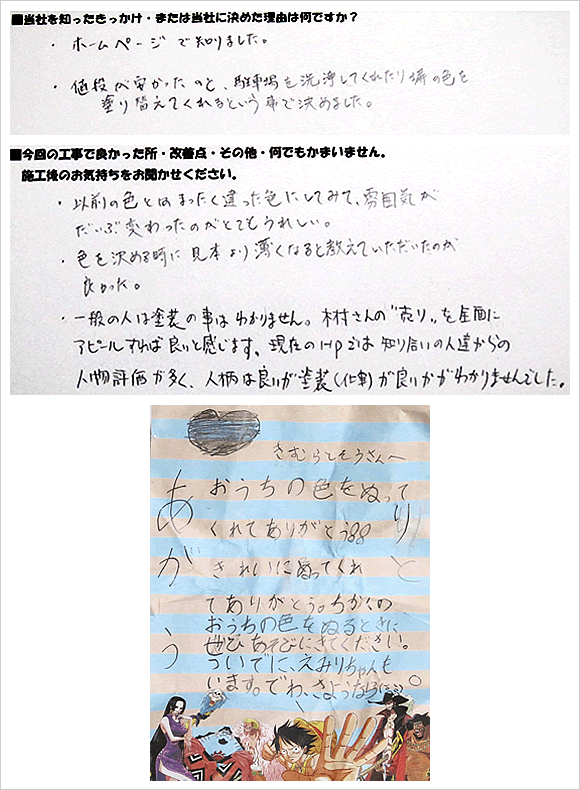 ■当社を知ったきっかけ・または当社に決めた理由は何ですか？
・ホームページで知りました。
・値段が安かったのと、駐車場を洗浄してくれたり塀の色を
塗り替えてくれるという事で決めました。
■今回の工事で良かった所・改善点・その他・何でもかまいません。
施工後のお気持ちをお聞かせください。
・以前の色とはまったく違った色にしてみて、雰囲気が
だいぶ変わったのがとてもうれしい。
・色を決める時に見本より薄くなると教えていただいたのが
良かった。
・一般の人は塗装の事はわかりません。木村さんの"売り"を全面に
アピールすれば良いと感じます。現在のHPでは知り合いの人達からの
人物評価が多く、人柄は良いが塗装(仕事)が良いかがわかりませんでした。
きむらとそうさんへ
ありがとう
おうちの色をぬって
くれてありがとう
きれいにぬってくれ
てありがとう。ちかくの
おうちの色をぬるときに
ぜひあそびにきてください。
ついでに、えみりちゃんも
います。でわ、さようなら